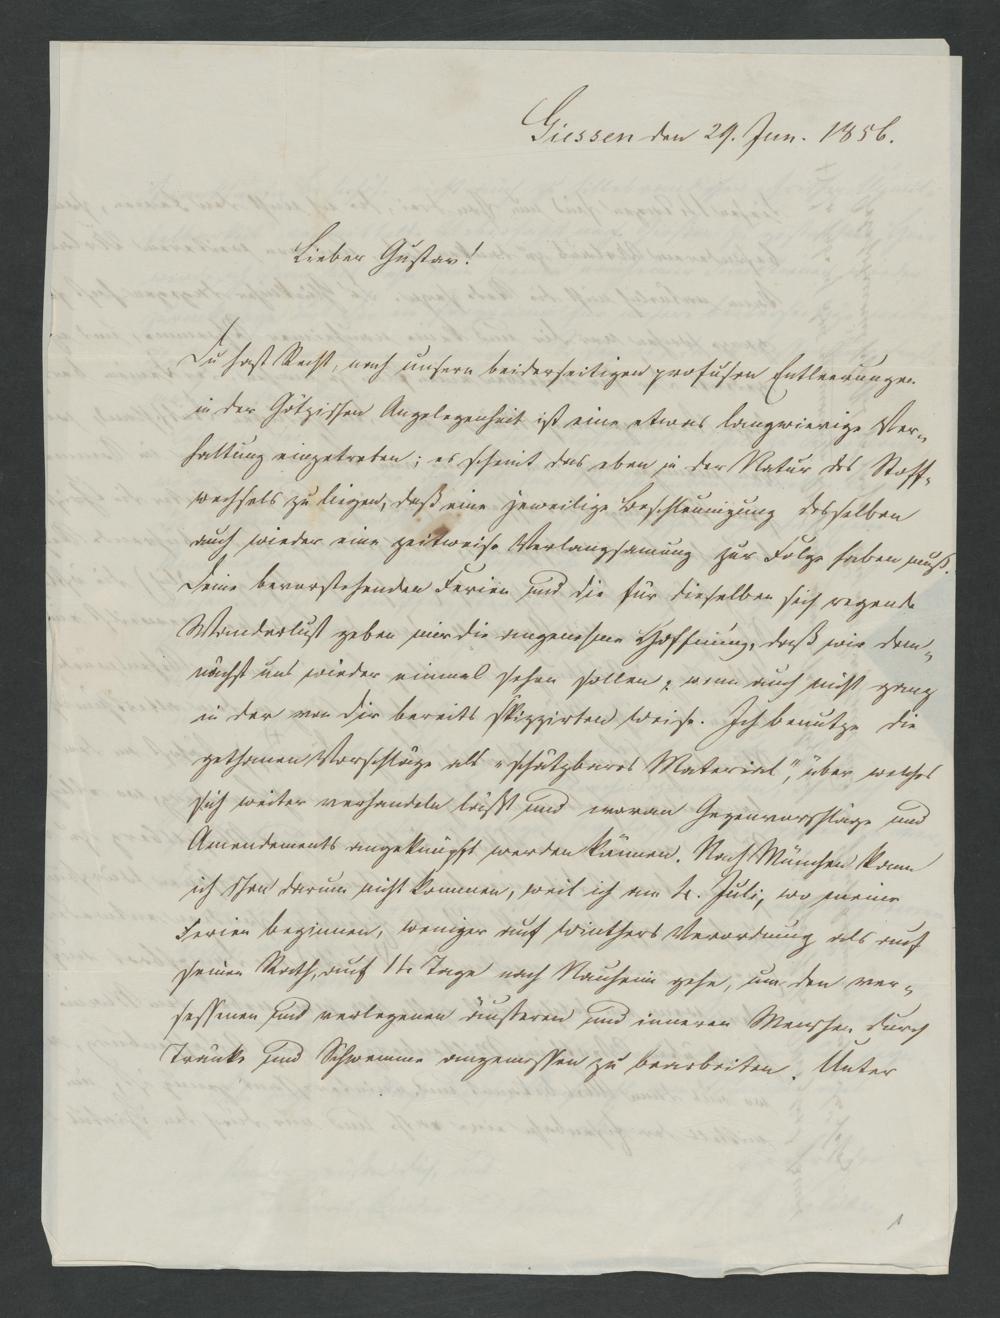 Giessen den 29. Jun. 1856.
Lieber Gustav!
Du hast Recht, nach unsern beiderseitigen profusen Entleerungen
in der Götzischen Angelegenheit ist eine etwas langwierige Ver-
haltung eingetreten; es scheint das eben in der Natur des Stoff-
wechsels zu liegen, daß eine jeweilige Beschleunigung desselben
auch wieder eine zeitweise Verlangsamung zur Folge haben muß.
Deine bevorstehenden Ferien und die für dieselben sich regende
Wanderlust geben mir die angenehme Hoffnung, daß wir dem-
nächst uns wieder einmal sehen sollen, wenn auch nicht ganz
in der von dir bereits skizzirten Weise. Ich benutze die
gethanen Vorschläge als "schätzbares Material", über welches
sich weiter verhandeln läßt und woran Gegenvorschläge und
Amendements angeknüpft werden können. Nach München kann
ich schon darum nicht kommen, weil ich am 4. Juli, wo meine
Ferien beginnen, weniger auf Winthers Verordnung als auf
seinen Rath, auf 14 Tage nach Nauheim gehe, um den ver-
sessenen und verlegenen äußeren und inneren Menschen durch
Tränke und Schwemme angemessen zu bearbeiten. Unter
1